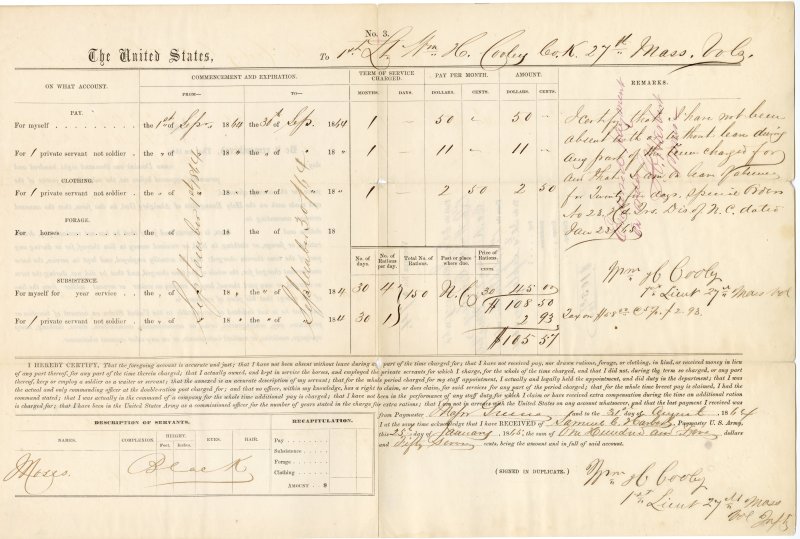 No. 3.
The United States, To 1st Lt Wm H. Cooley Co. K. 27th Mass. Vols.
ON WHAT ACCOUNT.
COMMENCEMENT AND EXPIRATION.
FROM— TO—
TERM OF SERVICE CHARGED.
MONTHS. DAYS.
PAY PER MONTH.
DOLLARS. CENTS.
AMOUNT.
DOLLARS. CENTS.
REMARKS.
PAY.
For myself the 1st of Sep. 1864 the 30th of Sep. 1864 1 - 50 - 50 -
For 1 private servant not soldier the " of " 18 " the " of " 18 " 1 - 11 - 11 -
CLOTHING.
For 1 private servant not soldier the " of " 18 " the " of " 18 " 1 - 2 50 2 50
FORAGE.
For horses the of 18 the of 18
No. of days. No. of Rations per day. Total No. of Rations. Post or place where due. Price of Rations. CENTS.
SUBSISTENCE.
For myself for year service the " of " 18 " the " of " 1864 30 4 150 N.C. 30 45 00
$ 108 50
For 1 private servant not soldier the " of " 18 " the " of " 1864 30 1 2 93
$ 105 57
September 1864
September 30 1864
I certify that I have not been
absent with or without leave during
any part of the term charged for
and that I am on leave of absence
for Twenty days. Special Orders
No 23. Hd Qrs. Dis of N.C. dated
Jan 23/65
Wm H Cooley
1st Lieut 27th Mass Vol
Tax on
2.93.
I HEREBY CERTIFY, That the foregoing account is accurate and just; that I have not been absent without leave during any part of the time charged for; that I have not received pay, nor drawn rations, forage, or clothing, in kind, or received money in lieu
of any part thereof, for any part of the time therein charged; that I actually owned, and kept in service the horses, and employed the private servants for which I charge, for the whole of the time charged, and that I did not, during the term so charged, or any part
thereof, keep or employ a soldier as a waiter or servant; that the annexed is an accurate description of my servant; that for the whole period charged for my staff appointment, I actually and legally held the appointment, and did duty in the department; that I was
the actual and only commanding officer at the double-ration post charged for; and that no officer, within my knowledge, has a right to claim, or does claim, for said services for any part of the period charged; that for the whole time brevet pay is claimed, I had the
command stated; that I was actually in the command of a company for the whole time additional pay is charged; that I have not been in the performance of any staff duty for which I claim or have received extra compensation during the time an additional ration
is charged for; that I have been in the United States Army as a commissioned officer for the number of years stated in the charge for extra rations; that I am not in arrears with the United States on any account whatsoever, and that the last payment I received was
from Paymaster Major and to the 31 day of August, 1864
I at the same time acknowledge that I have RECEIVED of Samuel C. Paymaster U. S. Army,
this 25 day of January, 1865, the sum of One Hundred and Five dollars
and Fifty Seven cents, being the amount and in full of said account.
DESCRIPTION OF SERVANTS.
NAMES. COMPLEXION. HEIGHT. Feet. Inches. EYES. HAIR.
Moses. Black
RECAPITULATION.
Pay
Subsistence
Forage
Clothing
AMOUNT $
(SIGNED IN DUPLICATE.)
Wm H Cooley
1st Lieut 27th Mass
Vol Inf